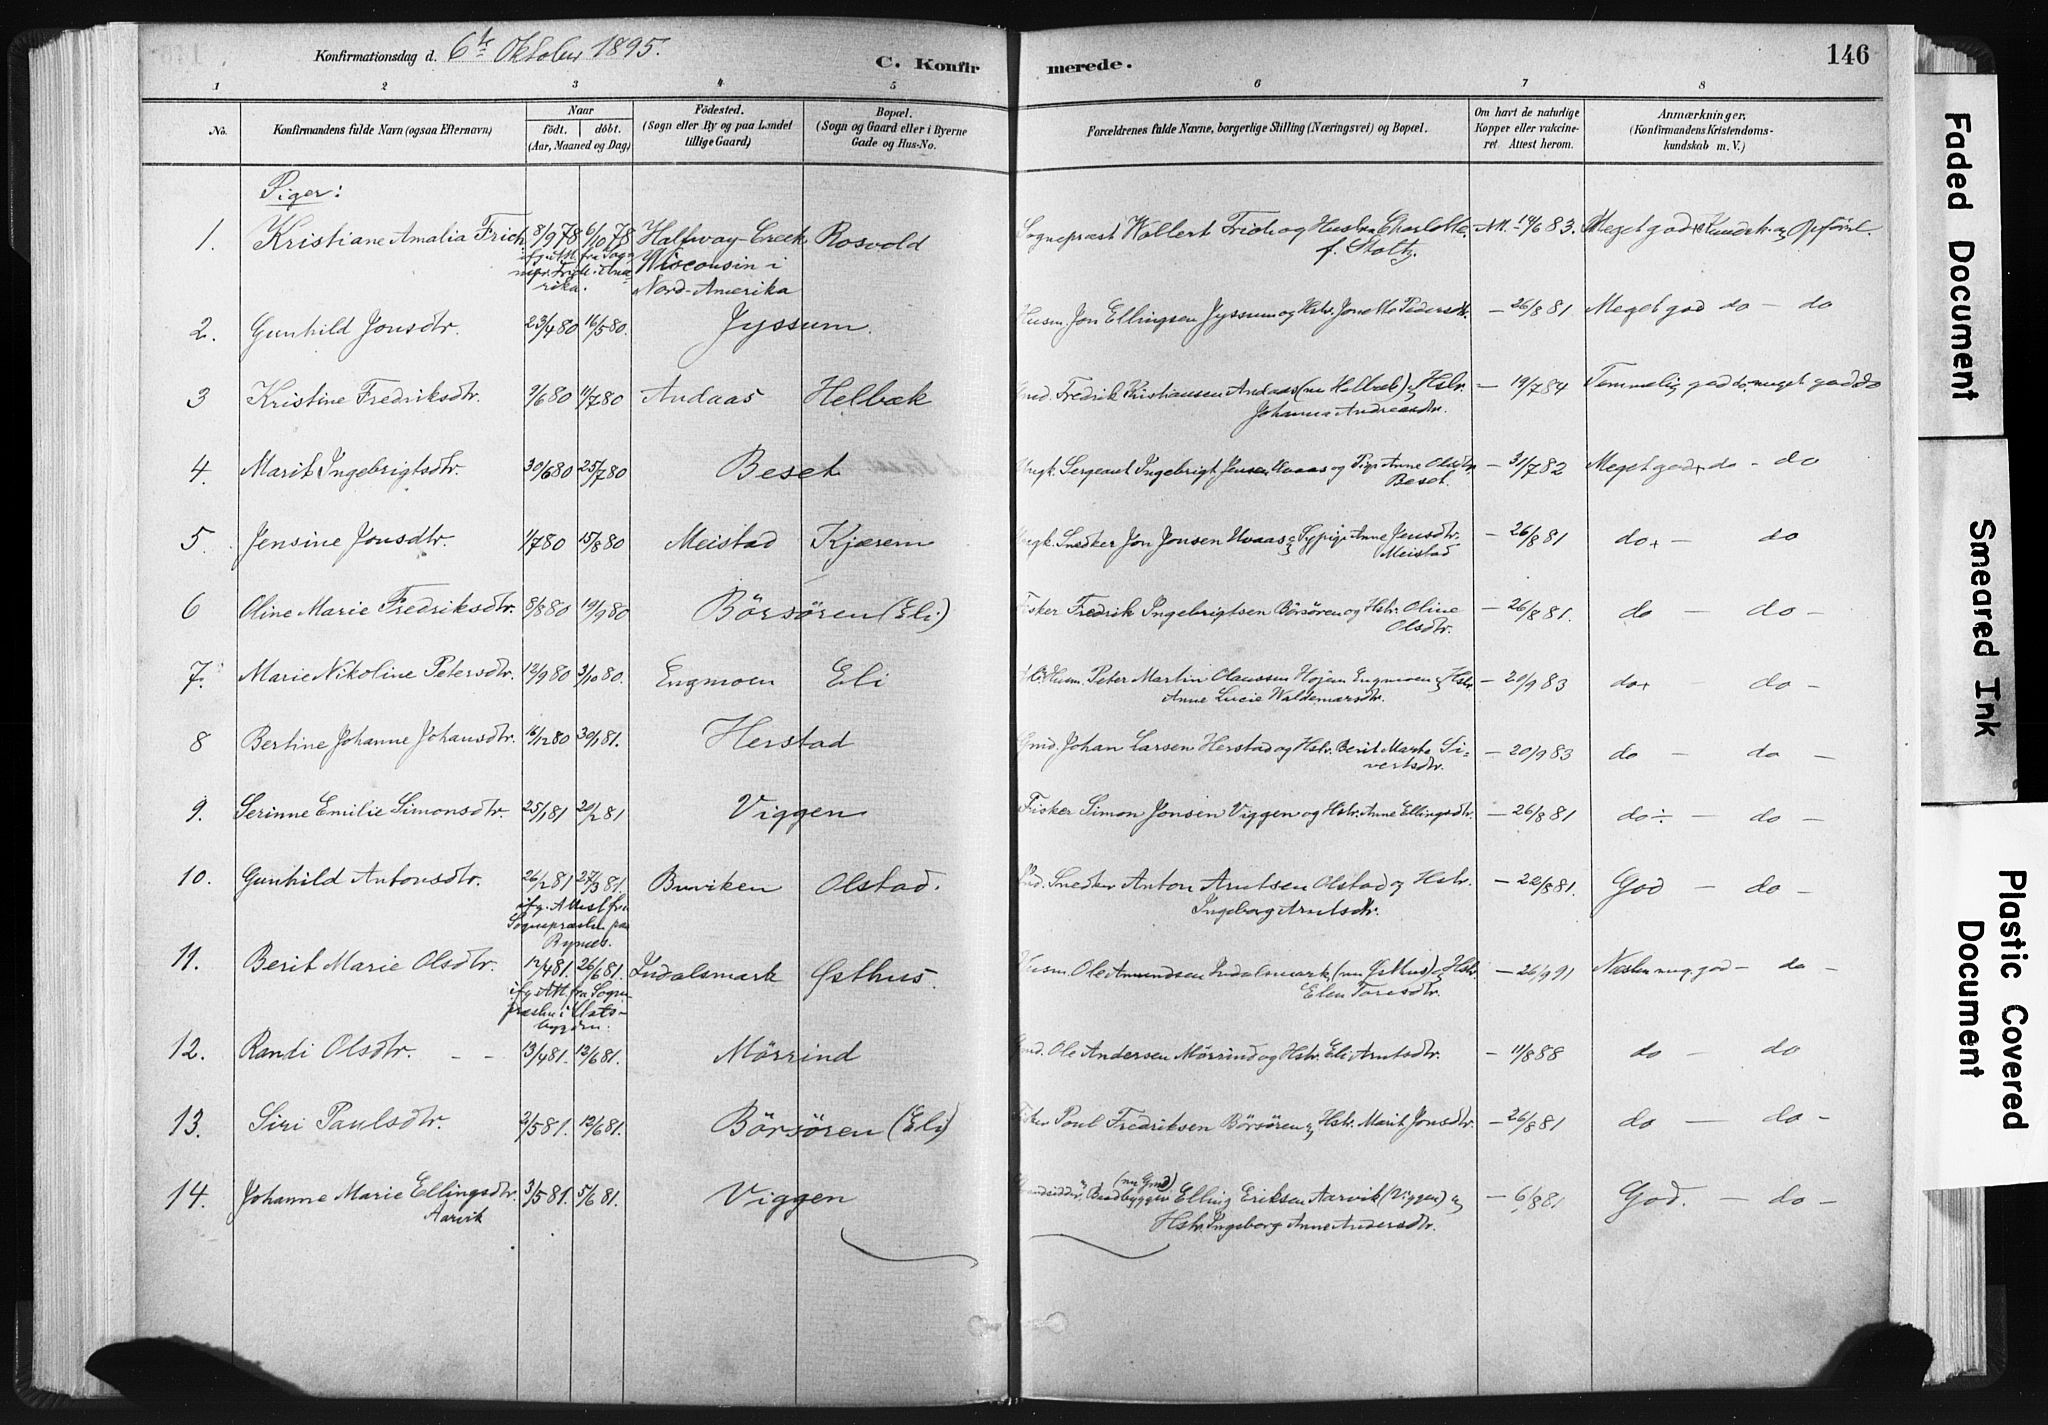 Konfirmationsdag d. 6te Oktober 1895.
C. Konfirmerede.
146
1 2 3 4 5 6 7 8
No.
Konfirmandens fulde Navn (ogsaa Efternavn)
Naar
født. døbt.
(Aar, Maaned og Dag)
Födested.
(Sogn eller By og paa Landet
tillige Gaard)
Bopæl.
(Sogn og Gaard eller i Byerne
Gade og Hus-No.
Forældrenes fulde Navne, borgerlige Stilling (Næringsvei) og Bopæl.
Om havt de naturlige
Kopper eller vakcine-
ret. Attest herom.
Anmærkninger.
(Konfirmandens Kristendoms-
kundskab m. V.)
Piger:
1. Kristiane Amalia Frich. 8/9 78 6/10 78 Halfway-Creek Rosvold Sogneprest Wollert Frich og Hustru Charlotte Att. 14/6 83. Meget god Kundsk. og Opförsl.
ifg. Att. fra Sogn
epr. Frich i Ame
rika.
Wisconsin i
Nord-Amerika
f. Stoltz.
2. Gunhild Jonsdtr. 23/4 80 16/5 80. Jyssum. Husm. Jon Ellingsen Jyssum og Hstr. Jonetta Pedersdtr. — 26/8 81 Meget god do — do
3 Kristine Fredriksdtr. 9/6 80 11/7 80 Andaas Helbæk Gmd. Fredrik Kristiansen Andaas (nu Helbæk) og Hstr. — 19/7 84 Temmelig god do, meget god do
Johanna Andreasdtr.
4. Marit Ingebrigtsdtr. 30/6 80 25/7 80 Beset Ungk. Sergeant Ingebrigt Jensen Uvaas og Pige Anne Olsdtr. — 31/7 82 Meget god do - do
Beset.
5. Jensine Jonsdtr. 1/7 80 15/8 80 Meistad Kjærem Ungk. Snedker Jon Jonsen Uvaas og Sypige Anne Jensdtr. — 26/8 81 do — do
Meistad
6 Oline Marie Fredriksdtr. 8/8 80 19/9 80 Börsören (Eli) Fisker Fredrik Ingebrigtsen Börsören og Hstr. Oline — 26/8 81. do — do —
Olsdtr.
7. Marie Nikoline Petersdtr. 12/9 80 3/10 80. Engmoen Eli Husm. Peter Martin Olaussen Hojem Engmoen og Hstr. — 20/9 83 do — do —
Anne Lucie Waldemarsdtr.
8 Bertine Johanne Johansdtr. 16/12 80 30/1 81. Herstad Gmd. Johan Larsen Herstad og Hstr. Berit Marta Si- — 20/9 83 do — do —
vertsdtr.
9. Serinne Emilie Simonsdtr. 25/1 81 20/2 81 Viggen Fisker Simon Jonsen Viggen og Hstr. Anne Ellingsdtr. — 26/8 81 do ÷ — do —
10. Gunhild Antonsdtr. 26/2 81 27/3 81. Buviken Olstad. Snedker Anton Arntsen Olstad og Hstr. — 22/8 81. God — do —
ifg. Attest fra
Sognepresten paa
Bynes.
Ingeborg Arntsdtr.
11. Berit Marie Olsdtr. 12/4 81. 26/6 81. Indalsmark Östhus. Husm. Ole Amundsen Indalsmark (nu Östhus) og Hstr. — 26/9 91 Næsten meg. god — do —
ifg. Att. fra Sogne
presten i Stads-
bygden.
Elen Toresdtr.
12. Randi Olsdtr. - - 13/4 81. 12/6 81. Mörrind Gmd. Ole Andersen Mörrind og Hstr. Eli Arntsdtr. — 11/8 88 do — do
13. Siri Paulsdtr. 2/5 81. 12/6 81. Börsören (Eli) Fisker Poul Fredriksen Börsören og Hstr. Marit Jonsdtr. — 26/8 81 do — do —
14. Johanne Marie Ellingsdtr. 3/5 81. 5/6 81. Viggen Strandsidder og Baadbygger (nu Gmd) Elling Eriksen Aarvik (Viggen) og — 6/8 81 God. — do —
Aarvik
Hstr. Ingeborg Anne Andersdtr.
Faded Document
Smeared Ink
Plastic Covered
Document